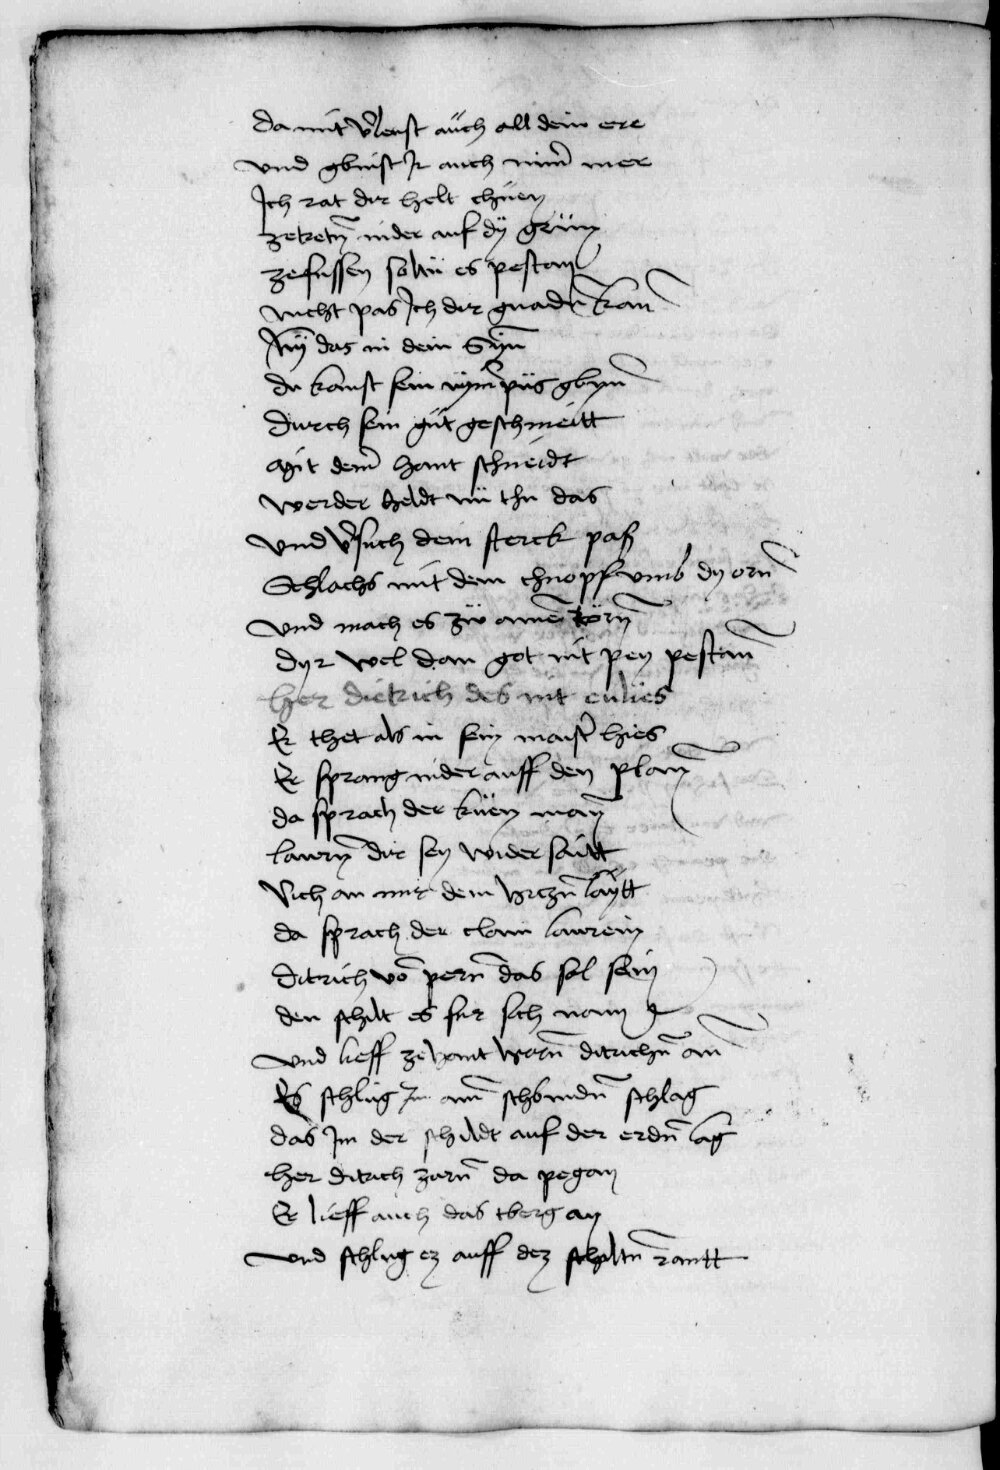 da mit v̉leust aüch all dein ere
vnd gbinst Jr auch nim̉ mer
Jch rat dir helt chüen
zetretn̄ nider auf dÿ grün
zefussen soltu es pestan
nicht pas Jch dir gnadn̄ kan
Nÿ das in dein Sÿn̄
du kanst sein nÿm̉ püs gbyn̄
durch sein güt geschmeitt
Mit dem̄ hant schneidt
werder heldt nü thu das
vnd v̉such dein sterck pas
Schlachs mit dem chnopf vmb dy orn̄
vnd mach es zü ainē törn̄
dyr wel dan got nit pey pestan̄
her dietrich des nit enlies
Er thet als in sein maist̉ hies
Er sprang nider auff den plan̄
da sprach der küen man
lawryn̄ dir sey wider saitt
Rich an mir dein hrczn̄ laÿtt
da sprach der clain lawrein
ditrich vō pern̄ das sol sein
den schilt es fur sich nam
vnd lieff zehant hern̄ ditrichn̄ an̄
Es schlüg Jm ain̄ schbindn̄ schlag
das Jm der schildt auf der erdn̄ lag
her ditrich zürn̄ da pegan
Er lieff auch das tberg an
vnd schlug ez auff dez schiltn̄ rantt